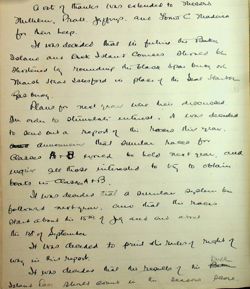 A vote of thanks was extended to Messrs
Pratt, Jeffreys, and
for their help.
It was decided that in future the
Island and Duck Island Courses should be
shortened by rounding the black spar buoy on
March Head in place of the Seal Harbor
Gas buoy.
Plans for next year were then discussed
In order to stimulate interest. It was decided
to send out a report of the races this year.
announce that similar races for
Classes A + B would be held next year, and
urge all those interested to try to obtain
boats in Classes A + B.
It was decided that a similar system be
followed next year, and that the races
start about the 15th of July and end about
the 1st of September
It was decided to print the rules of right of
way in this report.
It was decided that the results of the Duck
Island should count in the season's